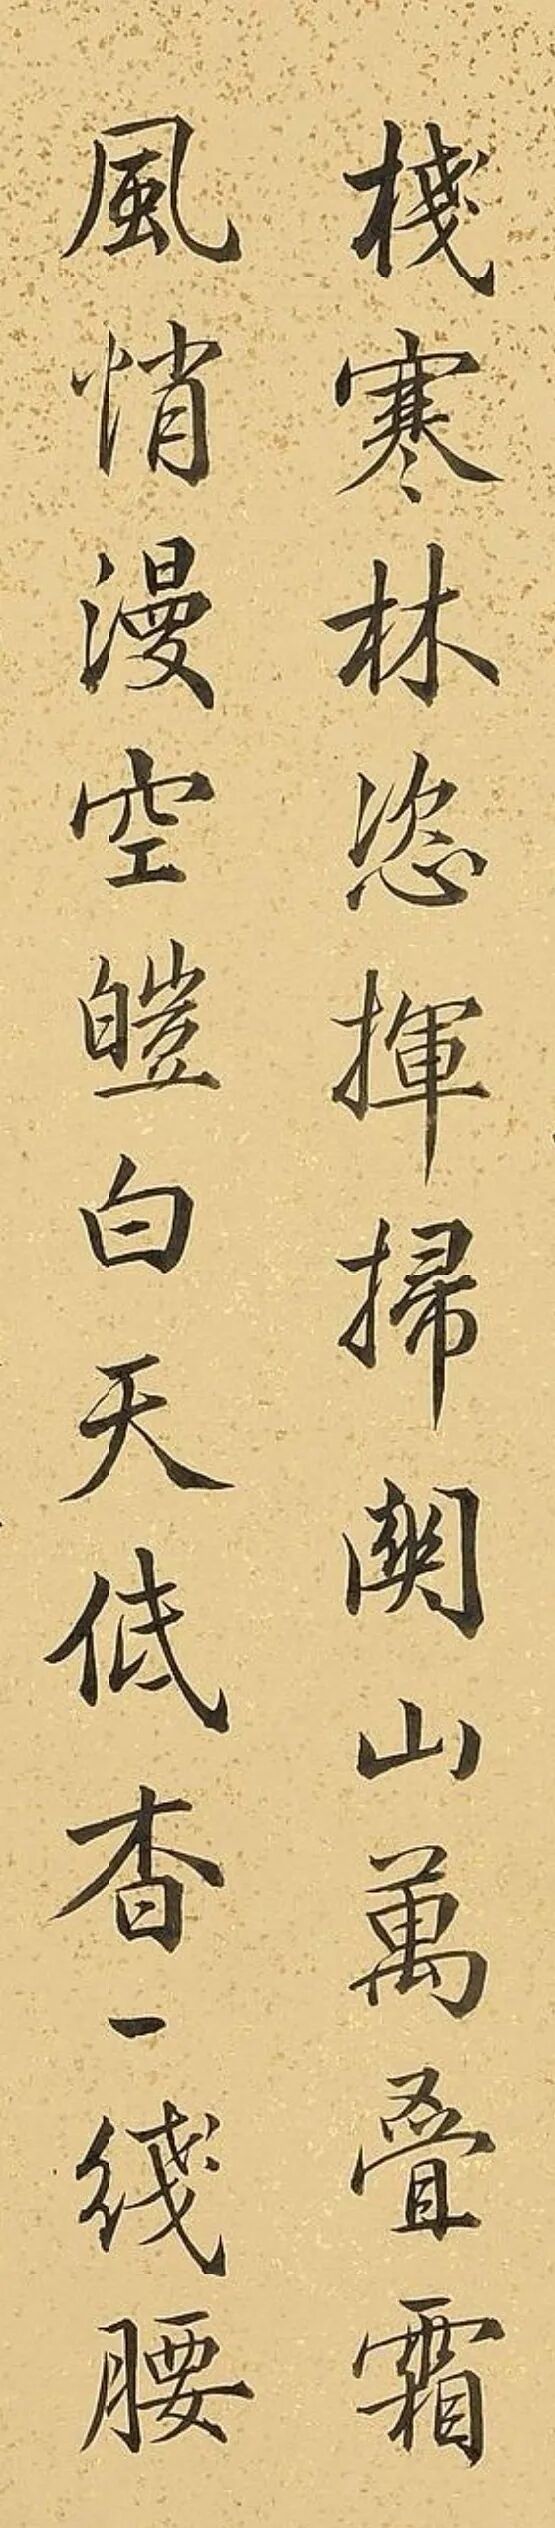 棧寒林恣揮掃關山萬叠霜
風悄漫空皚白天低杳一綫腰